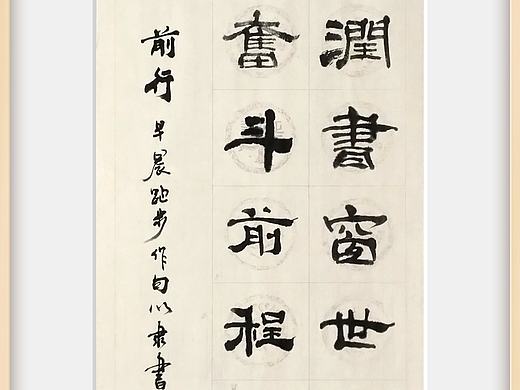 潤書窗世
奮斗前程
前行早晨跑步作句以隶書